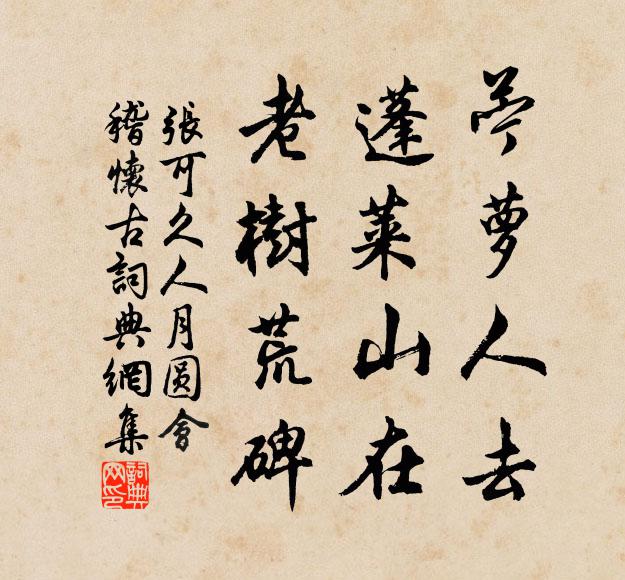 苧萝人去
蓬萊山在
老樹荒碑
張可久人月圓會
稽懷古詞典網集
詞典
网印